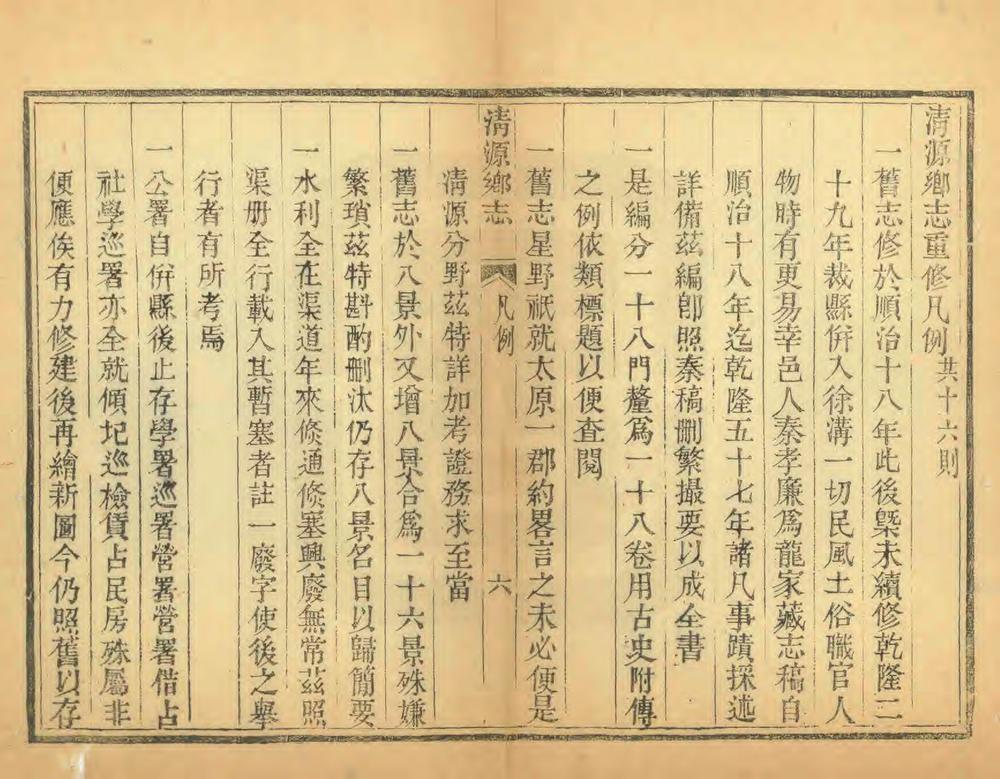 清源鄉志重修凡例共十六則
一舊志修於順治十八年此後槩未續修乾隆二
十九年裁縣倂入徐溝一切民風土俗職官人
物時有更易幸邑人秦孝廉爲龍家藏志稿自
順治十八年迄乾隆五十七年諸凡事蹟採述
詳備茲編卽照秦稿刪繁撮要以成全書
一是編分一十八門釐爲一十八卷用古史附傳
之例依類標題以便査閱
一舊志星野祇就太原一郡約畧言之未必便是
清源鄉志
凡例
六
清源分野茲特詳加考證務求至當
一舊志於八景外又增八景合爲一十六景殊嫌
繁瑣茲特斟酌刪汰仍存八景名目以歸簡要
一水利全在渠道年來倐通倐塞興廢無常茲照
渠册全行載入其暫塞者註一廢字使後之舉
行者有所考焉
一公署自倂縣後止存學署巡署營署營署借占
社學巡署亦全就傾圮巡檢賃占民房殊屬非
便應俟有力修建後再繪新圖今仍照舊以存